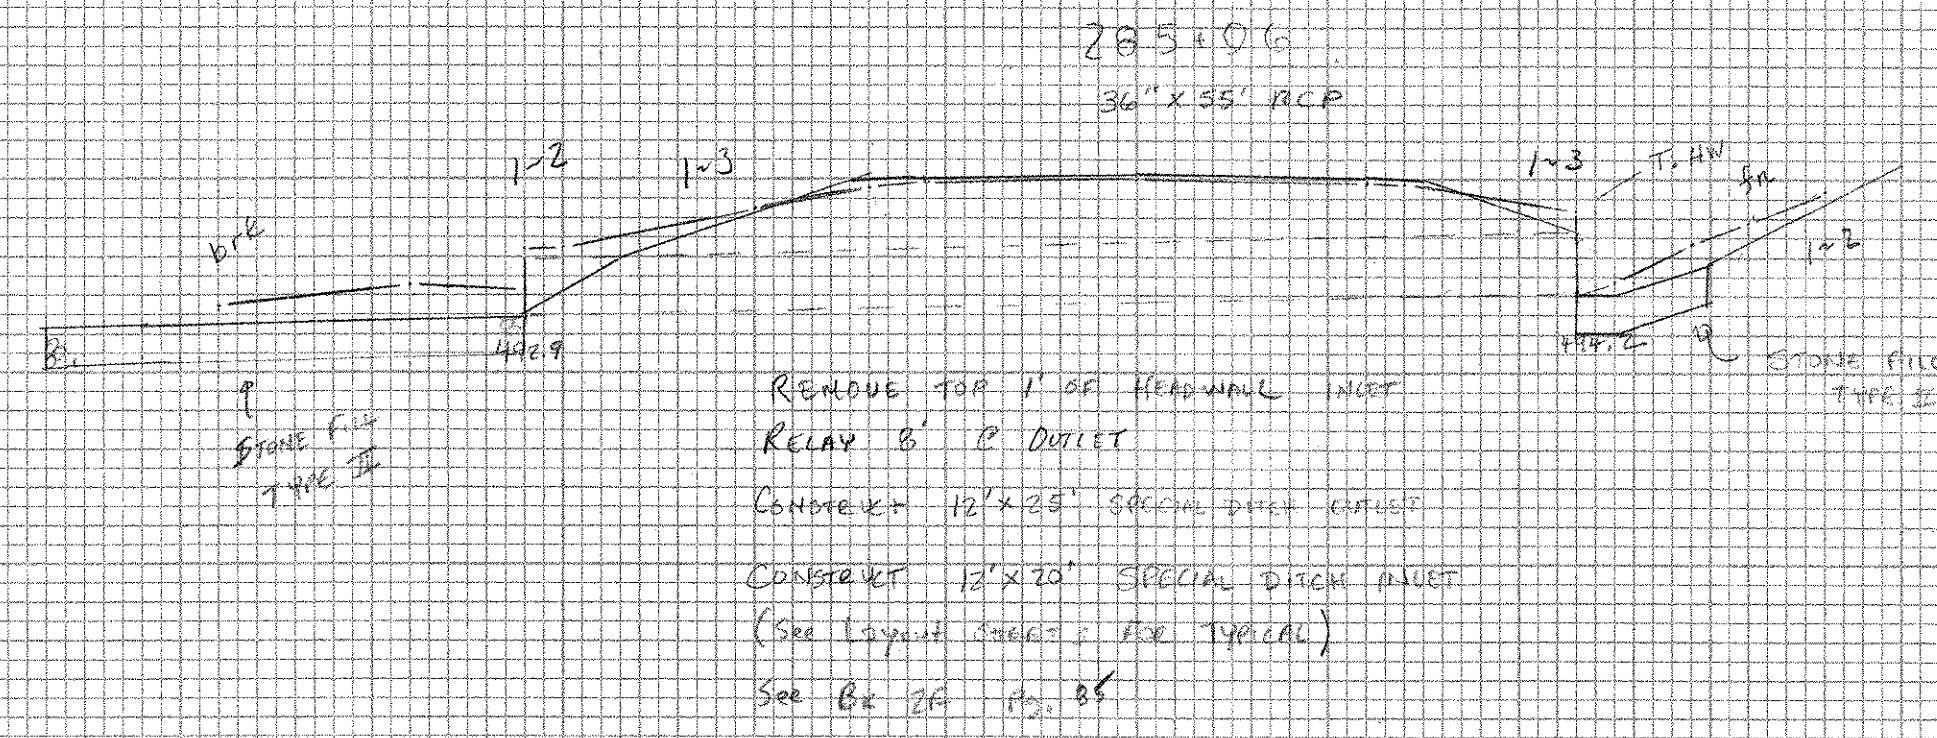 285+06
36" X 55' RCP
1~2
1~3
1~3
T. HW
brk
1~2
492.9
494.2
STONE FILL
TYPE II
STONE FILL
TYPE II
REMOVE TOP 1' OF HEADWALL INLET
RELAY 8' @ OUTLET
CONSTRUCT 12' X 25' SPECIAL DITCH OUTLET
CONSTRUCT 12' X 20' SPECIAL DITCH INLET
(See Layout SHEETS FOR TYPICAL)
See Bk 2F Pg. 85